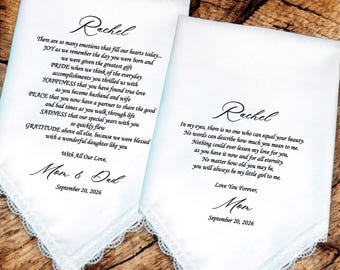 Rachel
There are so many emotions that fill our hearts today...
JOY as we remember the day you were born and
we were given the greatest gift
PRIDE when we think of the everyday
accomplishments you thrilled us with
HAPPINESS that you have found true love
as you become husband and wife
PEACE that you now have a partner to share the good
and bad times as you walk through life
SADNESS that our special years with you
so quickly flew
GRATITUDE above all else, because we were blessed
with a wonderful daughter like you
With All Our Love,
Mom & Dad
September 20, 2026
Rachel
In my eyes, there is no one who can equal your beauty.
No words can describe how much you mean to me.
Nothing could ever lessen my love for you,
as you have it now and for all eternity.
No matter how old you may be,
you will always be my little girl to me.
Love You Forever,
Mom
September 20, 2026